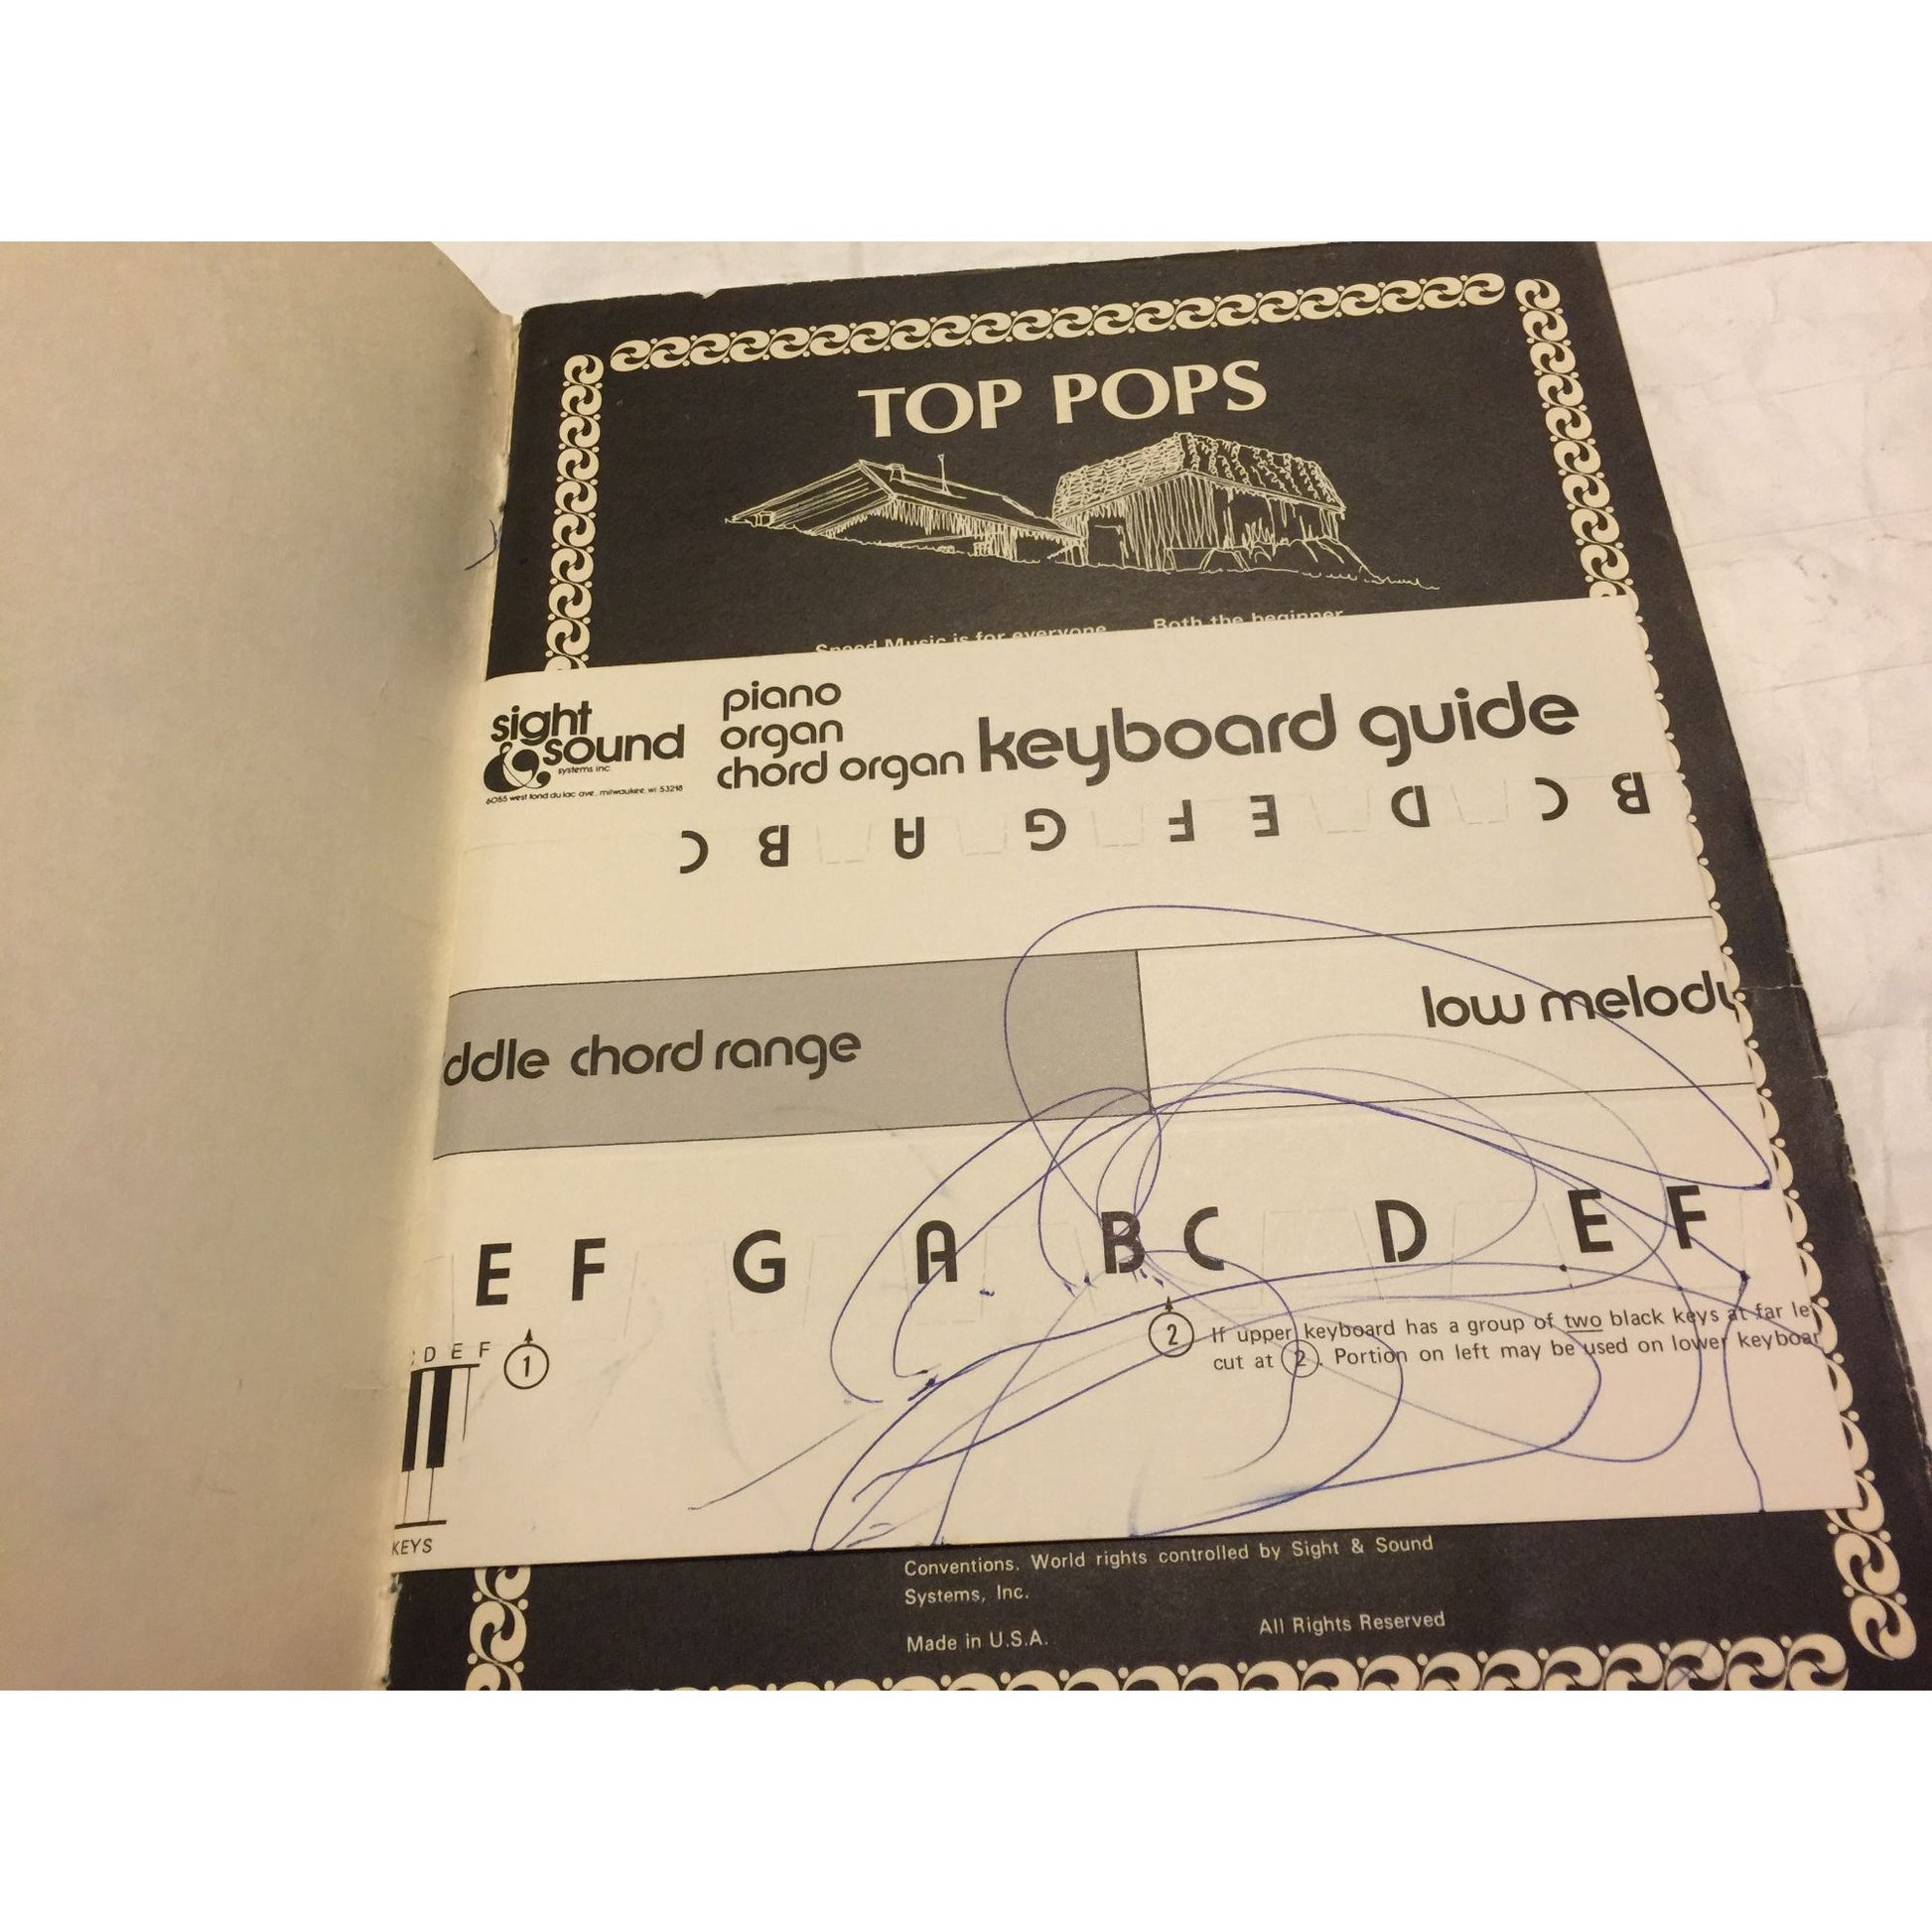 TOP POPS
Speed Music is for everyone Both the beginner
sight
& sound
systems inc.
6055 west fond du lac ave. milwaukee, wi 53218
piano
organ
chord organ keyboard guide
C B A G F E D C B
ddle chord range
low melody
E F G A B C D E F
D E F
1
2
If upper keyboard has a group of two black keys at far le
cut at 2. Portion on left may be used on lower keyboar
KEYS
Conventions. World rights controlled by Sight & Sound
Systems, Inc.
Made in U.S.A. All Rights Reserved